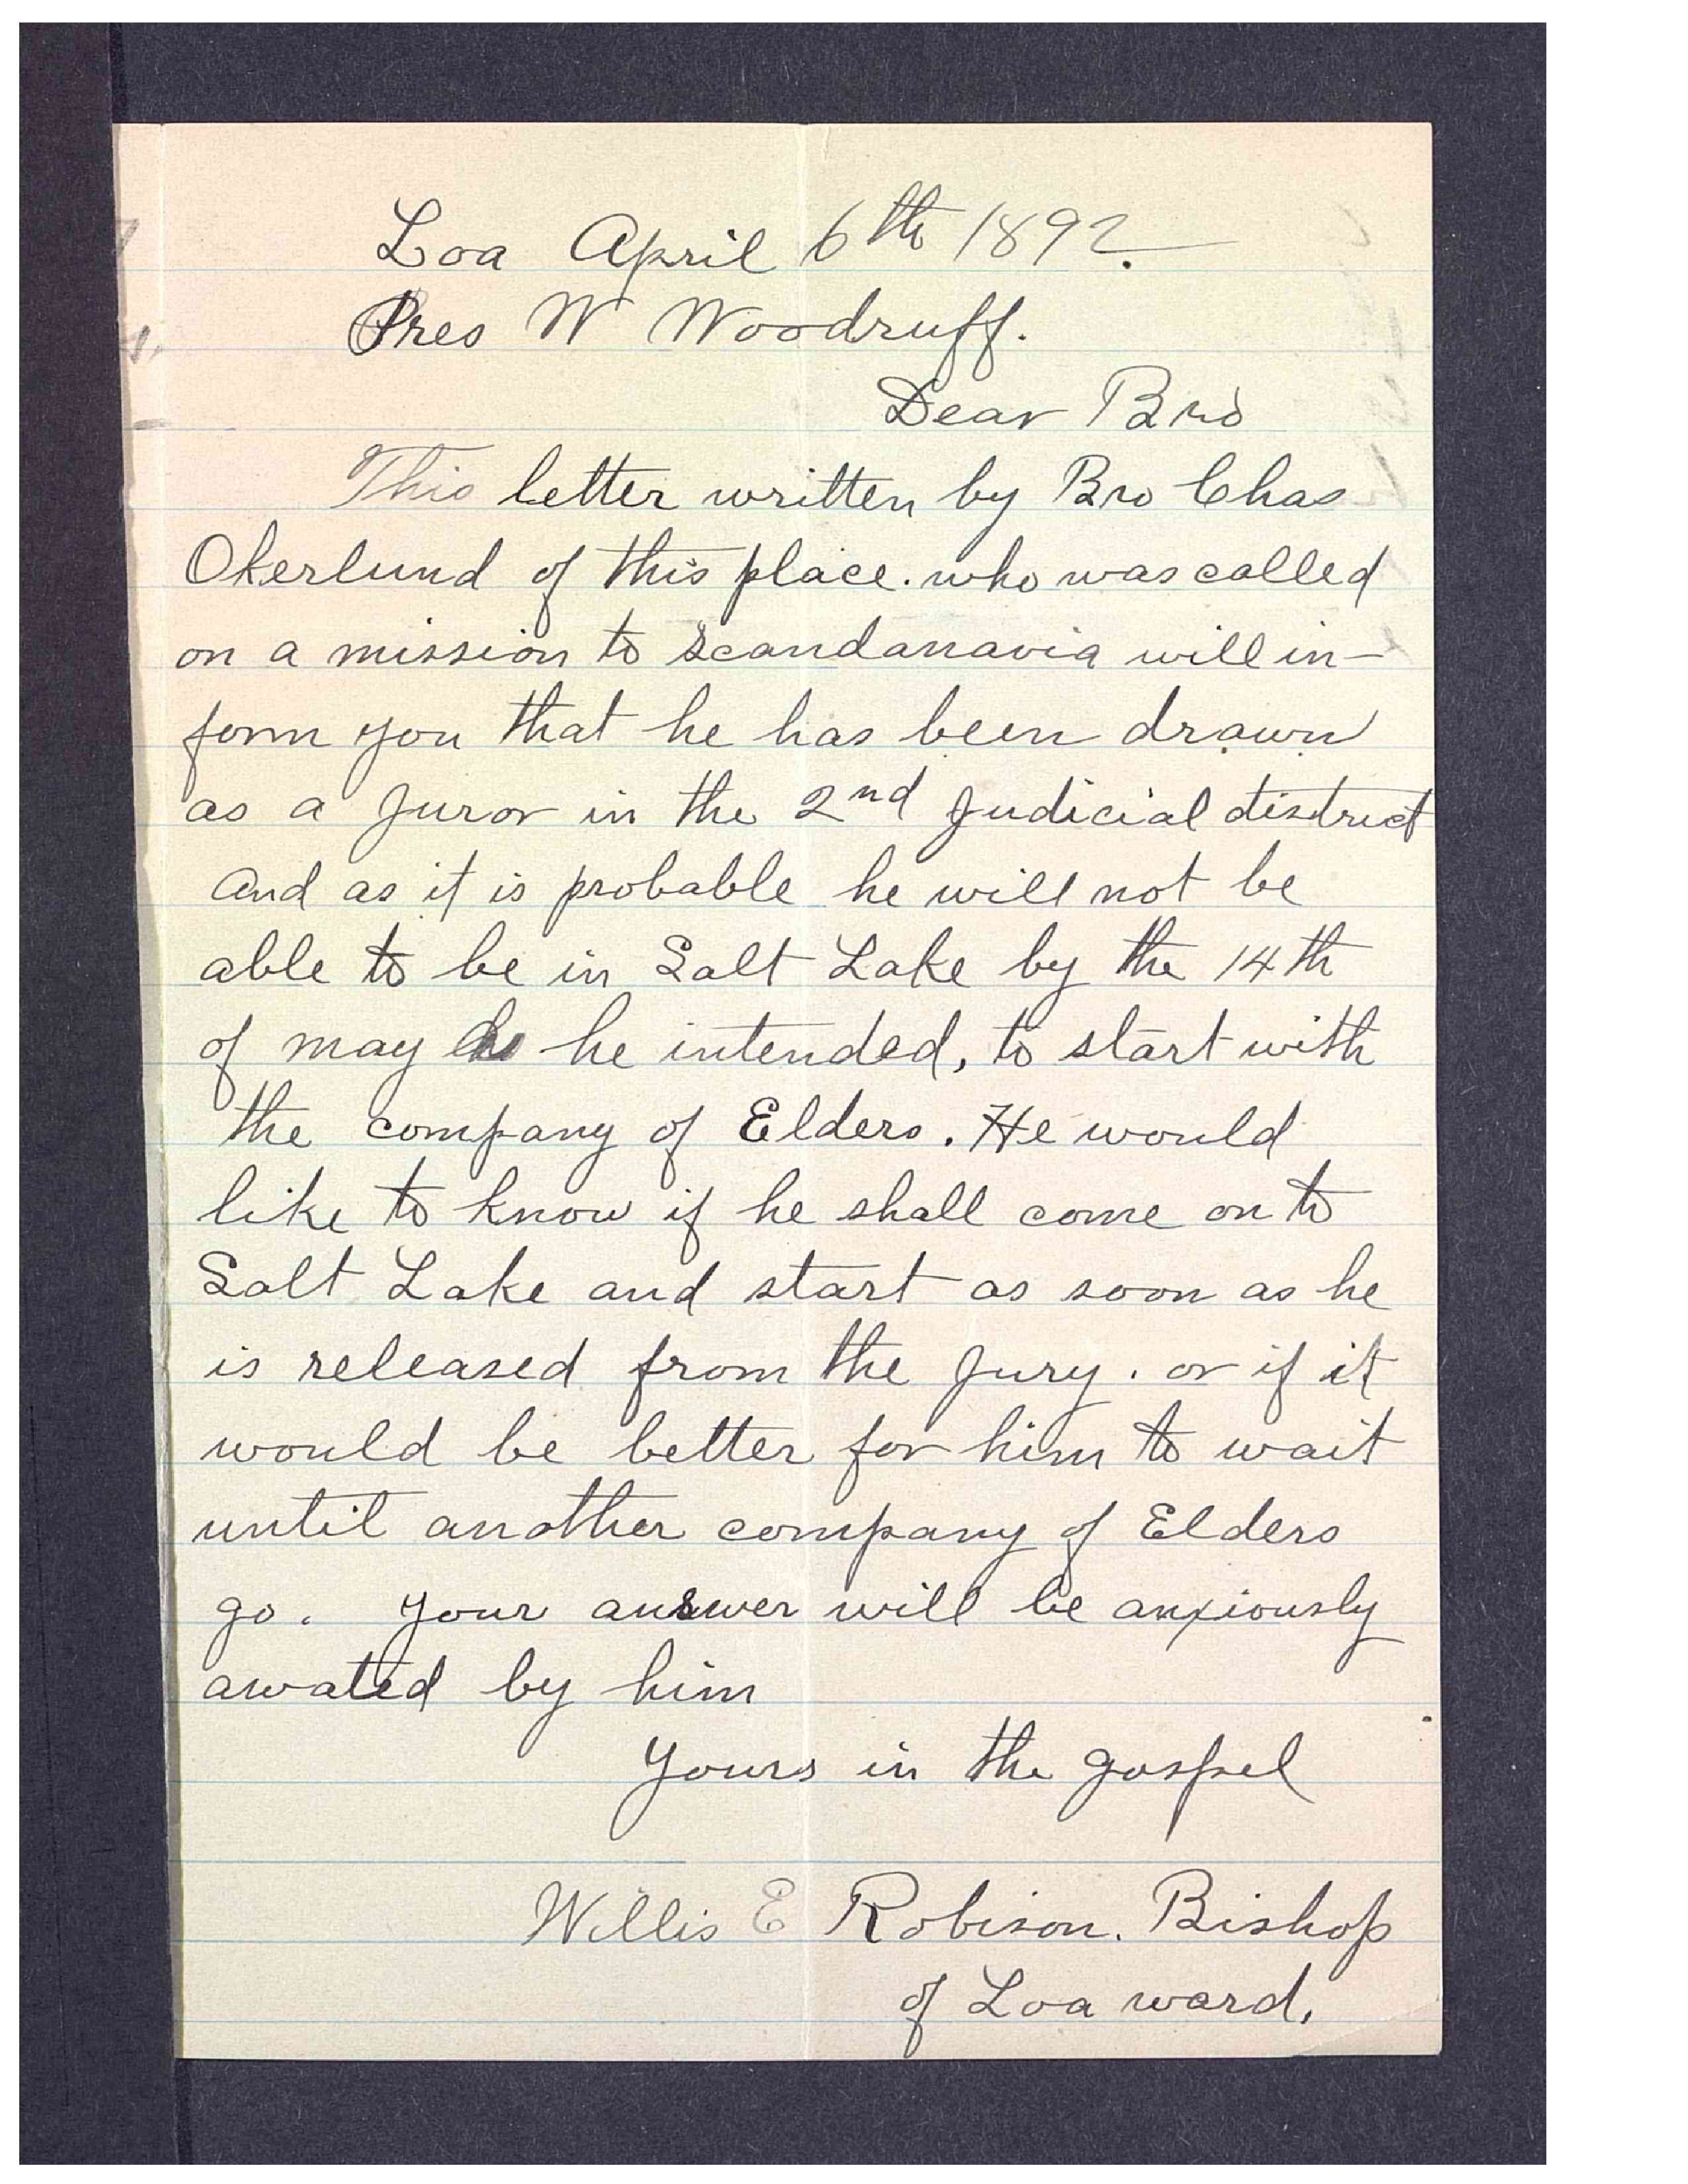 Loa April 6th 1892.
Pres W Woodruff.
Dear Bro
This letter written by Bro Chas
Okerlund of this place. who was called
on a mission to Scandanavia will in-
form you that he has been drawn
as a Juror in the 2nd Judicial district
and as it is probable he will not be
able to be in Salt Lake by the 14th
of may as he intended, to start with
the company of Elders. He would
like to know if he shall come on to
Salt Lake and start as soon as he
is released from the Jury. or if it
would be better for him to wait
until another company of Elders
go. Your answer will be anxiously
awated by him
Yours in the gospel
Willis E Robison. Bishop
of Loa ward.